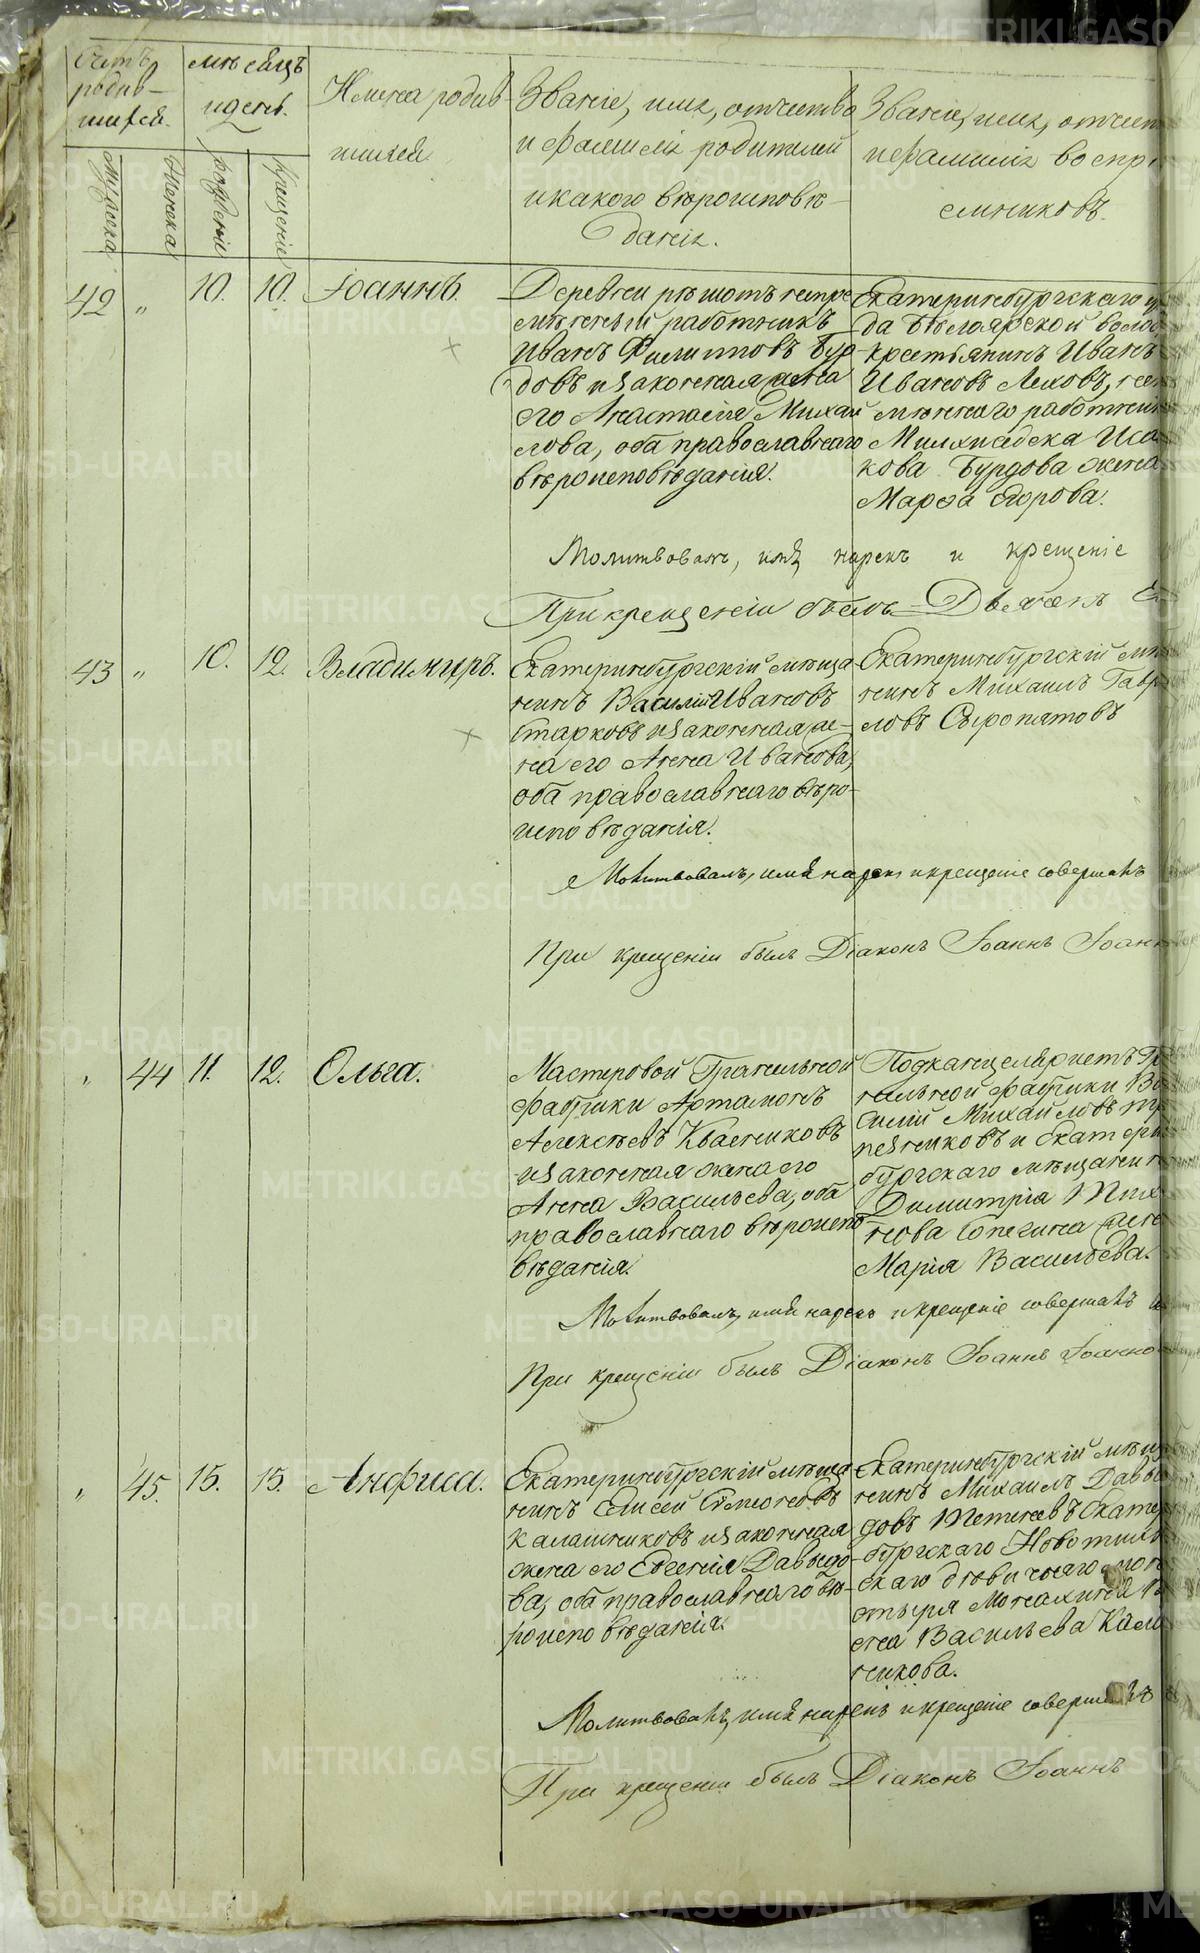 Счетъ родив-
шихся.
Мѣсяцъ
и день.
Имена родив-
шихся
Званіе, имя, отчество
и фамилія родителей
и какого вѣроисповѣ-
данія.
Званіе, имя, отчест
и фамилія воспрі
емниковъ.
мужеска
женска
рожденія
крещенія
42 „ 10. 10. Іоаннъ.
Деревни Рѣшотъ непре
мѣнный работникъ
Иванъ Филиповъ Бур-
довъ и законная жена
его Анастасія Михаи
лова, оба православнаго
вѣроисповѣданія.
Екатеринбургскаго уѣ
да Бѣлоярской воло
крестьянинъ Иванъ
Ивановъ Леховъ,
мѣннаго работни
Милхиседека Иса
кова Бурдова жена
Марѳа Егорова.
Молитвовалъ, имя нарекъ и крещеніе
При крещеніи былъ Дьячекъ
43 „ 10. 12. Владимиръ.
Екатеринбургскій мѣща
нинъ Василій Ивановъ
Старковъ и законная же-
на его Анна Иванова,
оба православнаго вѣро-
исповѣданія.
Екатеринбургскій мѣ
нинъ Михаилъ Гавр
ловъ Сыропятовъ
Молитвовалъ, имя нарекъ и крещеніе совершалъ
При крещеніи былъ Діаконъ Іоаннъ Іоанн
„ 44 11. 12. Ольга.
Мастеровой Гранильной
фабрики Артамонъ
Алексѣевъ Квасниковъ
и законная жена его
Анна Васильева, оба
православнаго вѣроиспо
вѣданія.
Подканцеляристъ Гр
нильной фабрики Ва
силій Михайловъ Тр
пезниковъ и Екатери
бургскаго мѣщанин
Димитрія Тих
нова Бонегина жен
Марія Васильева.
Молитвовалъ, имя нарекъ и крещеніе совершалъ
При крещеніи былъ Діаконъ Іоаннъ Іоанно
„ 45. 15. 15. Анфиса.
Екатеринбургскій мѣща
нинъ Елисей Симеоновъ
Калашниковъ и законная
жена его Евгенія Давыдо-
ва, оба православнаго вѣ-
роисповѣданія.
Екатеринбургскій мѣщ
нинъ Михаилъ Давы
довъ Тетневъ Екате
бургскаго Новотихв
скаго дѣвичьяго мон
стыря Монахиня
Васильева Кала
никова.
Молитвовалъ, имя нарекъ и крещеніе совершалъ
При крещеніи былъ Діаконъ Іоаннъ
METRIKI.GASO-URAL.RU